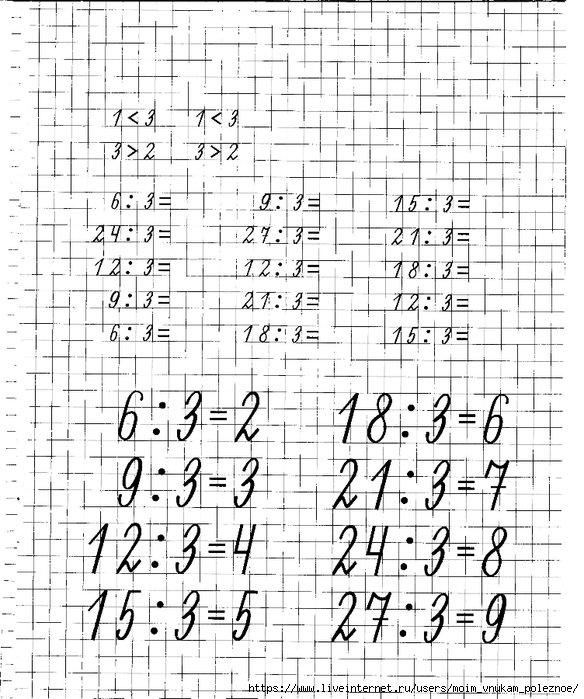 1 < 3 1 < 3
3 > 2 3 > 2
6 : 3 = 9 : 3 = 15 : 3 =
24 : 3 = 27 : 3 = 21 : 3 =
12 : 3 = 12 : 3 = 18 : 3 =
9 : 3 = 21 : 3 = 12 : 3 =
6 : 3 = 18 : 3 = 15 : 3 =
6 : 3 = 2 18 : 3 = 6
9 : 3 = 3 21 : 3 = 7
12 : 3 = 4 24 : 3 = 8
15 : 3 = 5 27 : 3 = 9
https://www.liveinternet.ru/users/moim_vnukam_poleznoe/